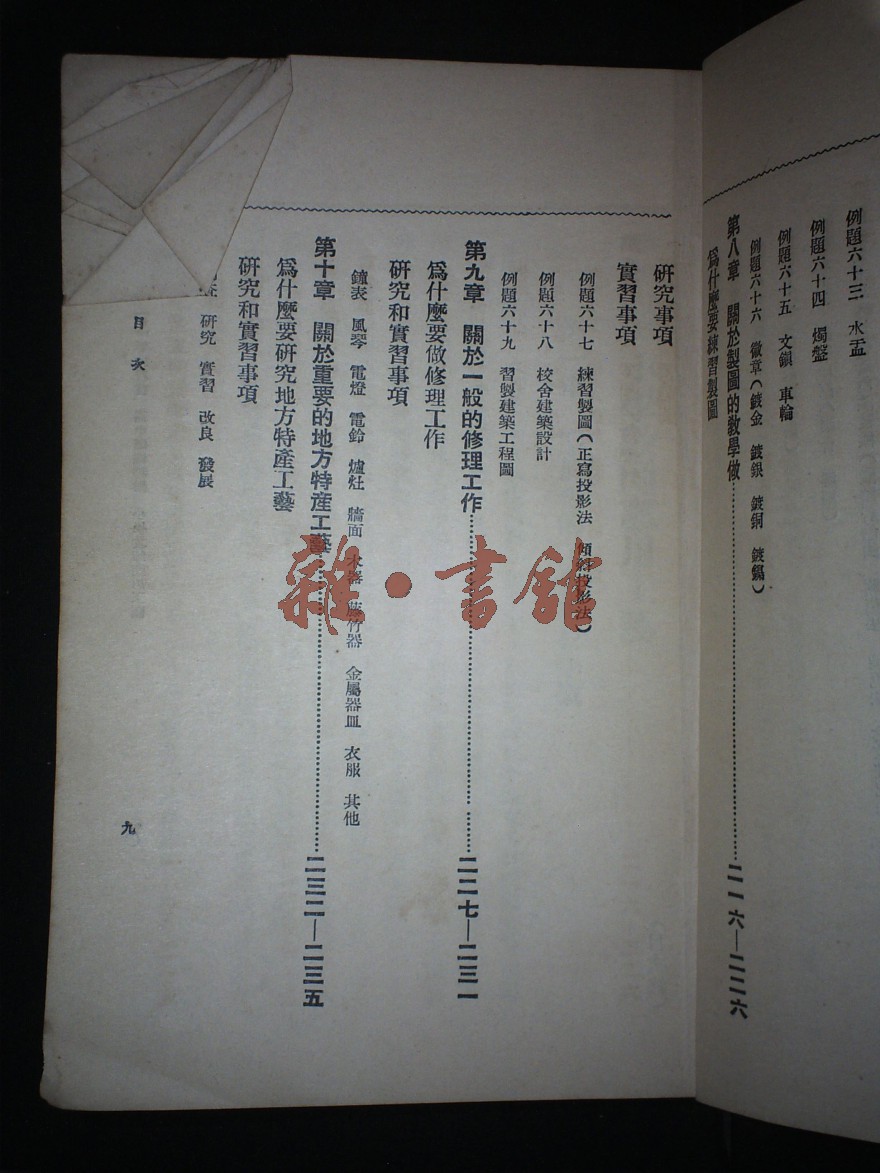 例題六十三 水盂
例題六十四 燭盤
例題六十五 文鎮 車輪
例題六十六 徽章(鍍金 鍍銀 鍍銅 鍍鎳)
第八章 關於製圖的教學做……二一六—二二六
爲什麼要練習製圖
研究事項
實習事項
例題六十七 練習製圖(正寫投影法 傾斜投影法)
例題六十八 校舍建築設計
例題六十九 習製建築工程圖
第九章 關於一般的修理工作……二二七—二三一
爲什麼要做修理工作
研究和實習事項
鐘表 風琴 電燈 電鈴 爐灶 牆面 木器 藤竹器 金屬器皿 衣服 其他
第十章 關於重要的地方特產工藝……二三二—二三五
爲什麼要研究地方特產工藝
研究和實習事項
研究 實習 改良 發展
目次
九
雜·書館